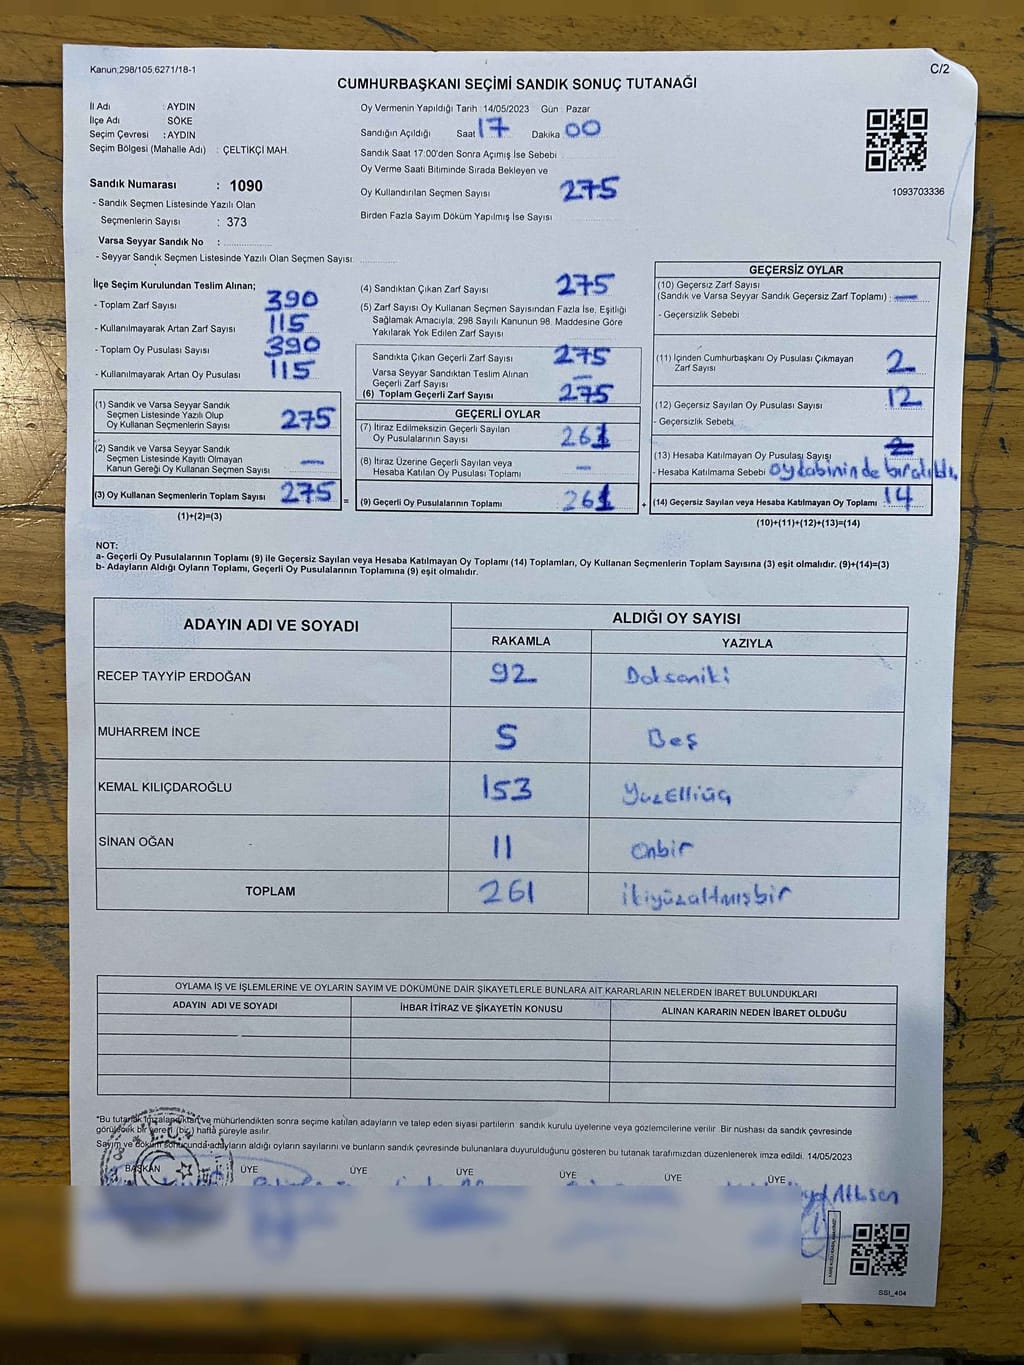 Kanun,298/105,6271/18-1
C/2
CUMHURBAŞKANI SEÇİMİ SANDIK SONUÇ TUTANAĞI
İl Adı : AYDIN
İlçe Adı : SÖKE
Seçim Çevresi : AYDIN
Seçim Bölgesi (Mahalle Adı) : ÇELTİKÇİ MAH.
Sandık Numarası : 1090
- Sandık Seçmen Listesinde Yazılı Olan
Seçmenlerin Sayısı : 373
Varsa Seyyar Sandık No :
- Seyyar Sandık Seçmen Listesinde Yazılı Olan Seçmen Sayısı:
Oy Vermenin Yapıldığı Tarih 14/05/2023 Gün : Pazar
Sandığın Açıldığı Saat 17 Dakika 00
Sandık Saat 17:00'den Sonra Açımış İse Sebebi
Oy Verme Saati Bitiminde Sırada Bekleyen ve
Oy Kullandırılan Seçmen Sayısı 275
Birden Fazla Sayım Döküm Yapılmış İse Sayısı
1093703336
İlçe Seçim Kurulundan Teslim Alınan;
- Toplam Zarf Sayısı 390
- Kullanılmayarak Artan Zarf Sayısı 115
- Toplam Oy Pusulası Sayısı 390
- Kullanılmayarak Artan Oy Pusulası 115
(1) Sandık ve Varsa Seyyar Sandık
Seçmen Listesinde Yazılı Olup
Oy Kullanan Seçmenlerin Sayısı 275
(2) Sandık ve Varsa Seyyar Sandık
Seçmen Listesinde Kayıtlı Olmayan
Kanun Gereği Oy Kullanan Seçmen Sayısı —
(3) Oy Kullanan Seçmenlerin Toplam Sayısı 275 =
(1)+(2)=(3)
(4) Sandıktan Çıkan Zarf Sayısı 275
(5) Zarf Sayısı Oy Kullanan Seçmen Sayısından Fazla İse, Eşitliği
Sağlamak Amacıyla, 298 Sayılı Kanunun 98. Maddesine Göre
Yakılarak Yok Edilen Zarf Sayısı
Sandıkta Çıkan Geçerli Zarf Sayısı 275
Varsa Seyyar Sandıktan Teslim Alınan
Geçerli Zarf Sayısı —
(6) Toplam Geçerli Zarf Sayısı 275
GEÇERLİ OYLAR
(7) İtiraz Edilmeksizin Geçerli Sayılan
Oy Pusulalarının Sayısı 261
(8) İtiraz Üzerine Geçerli Sayılan veya
Hesaba Katılan Oy Pusulası Toplamı —
(9) Geçerli Oy Pusulalarının Toplamı 261 +
GEÇERSİZ OYLAR
(10) Geçersiz Zarf Sayısı
(Sandık ve Varsa Seyyar Sandık Geçersiz Zarf Toplamı) : —
- Geçersizlik Sebebi
(11) İçinden Cumhurbaşkanı Oy Pusulası Çıkmayan
Zarf Sayısı 2
(12) Geçersiz Sayılan Oy Pusulası Sayısı 12
- Geçersizlik Sebebi
(13) Hesaba Katılmayan Oy Pusulası Sayısı
- Hesaba Katılmama Sebebi oy kabininde bırakıldı
(14) Geçersiz Sayılan veya Hesaba Katılmayan Oy Toplamı 14
(10)+(11)+(12)+(13)=(14)
NOT:
a- Geçerli Oy Pusulalarının Toplamı (9) ile Geçersiz Sayılan veya Hesaba Katılmayan Oy Toplamı (14) Toplamları, Oy Kullanan Seçmenlerin Toplam Sayısına (3) eşit olmalıdır. (9)+(14)=(3)
b- Adayların Aldığı Oyların Toplamı, Geçerli Oy Pusulalarının Toplamına (9) eşit olmalıdır.
ADAYIN ADI VE SOYADI
ALDIĞI OY SAYISI
RAKAMLA YAZIYLA
RECEP TAYYİP ERDOĞAN 92 Doksaniki
MUHARREM İNCE 5 Beş
KEMAL KILIÇDAROĞLU 153 Yüzelliüç
SİNAN OĞAN 11 Onbir
TOPLAM 261 ikiyüzaltmışbir
OYLAMA İŞ VE İŞLEMLERİNE VE OYLARIN SAYIM VE DÖKÜMÜNE DAİR ŞİKAYETLERLE BUNLARA AİT KARARLARIN NELERDEN İBARET BULUNDUKLARI
ADAYIN ADI VE SOYADI İHBAR İTİRAZ VE ŞİKAYETİN KONUSU ALINAN KARARIN NEDEN İBARET OLDUĞU
*Bu tutanak imzalandıktan ve mühürlendikten sonra seçime katılan adayların ve talep eden siyasi partilerin sandık kurulu üyelerine veya gözlemcilerine verilir. Bir nüshası da sandık çevresinde
görülecek bir yere (bir) hafta süreyle asılır.
Sayım ve döküm sonucunda adayların aldığı oyların sayılarını ve bunların sandık çevresinde bulunanlara duyurulduğunu gösteren bu tutanak tarafımızdan düzenlenerek imza edildi. 14/05/2023
BAŞKAN ÜYE ÜYE ÜYE ÜYE ÜYE ÜYE
SSI_404